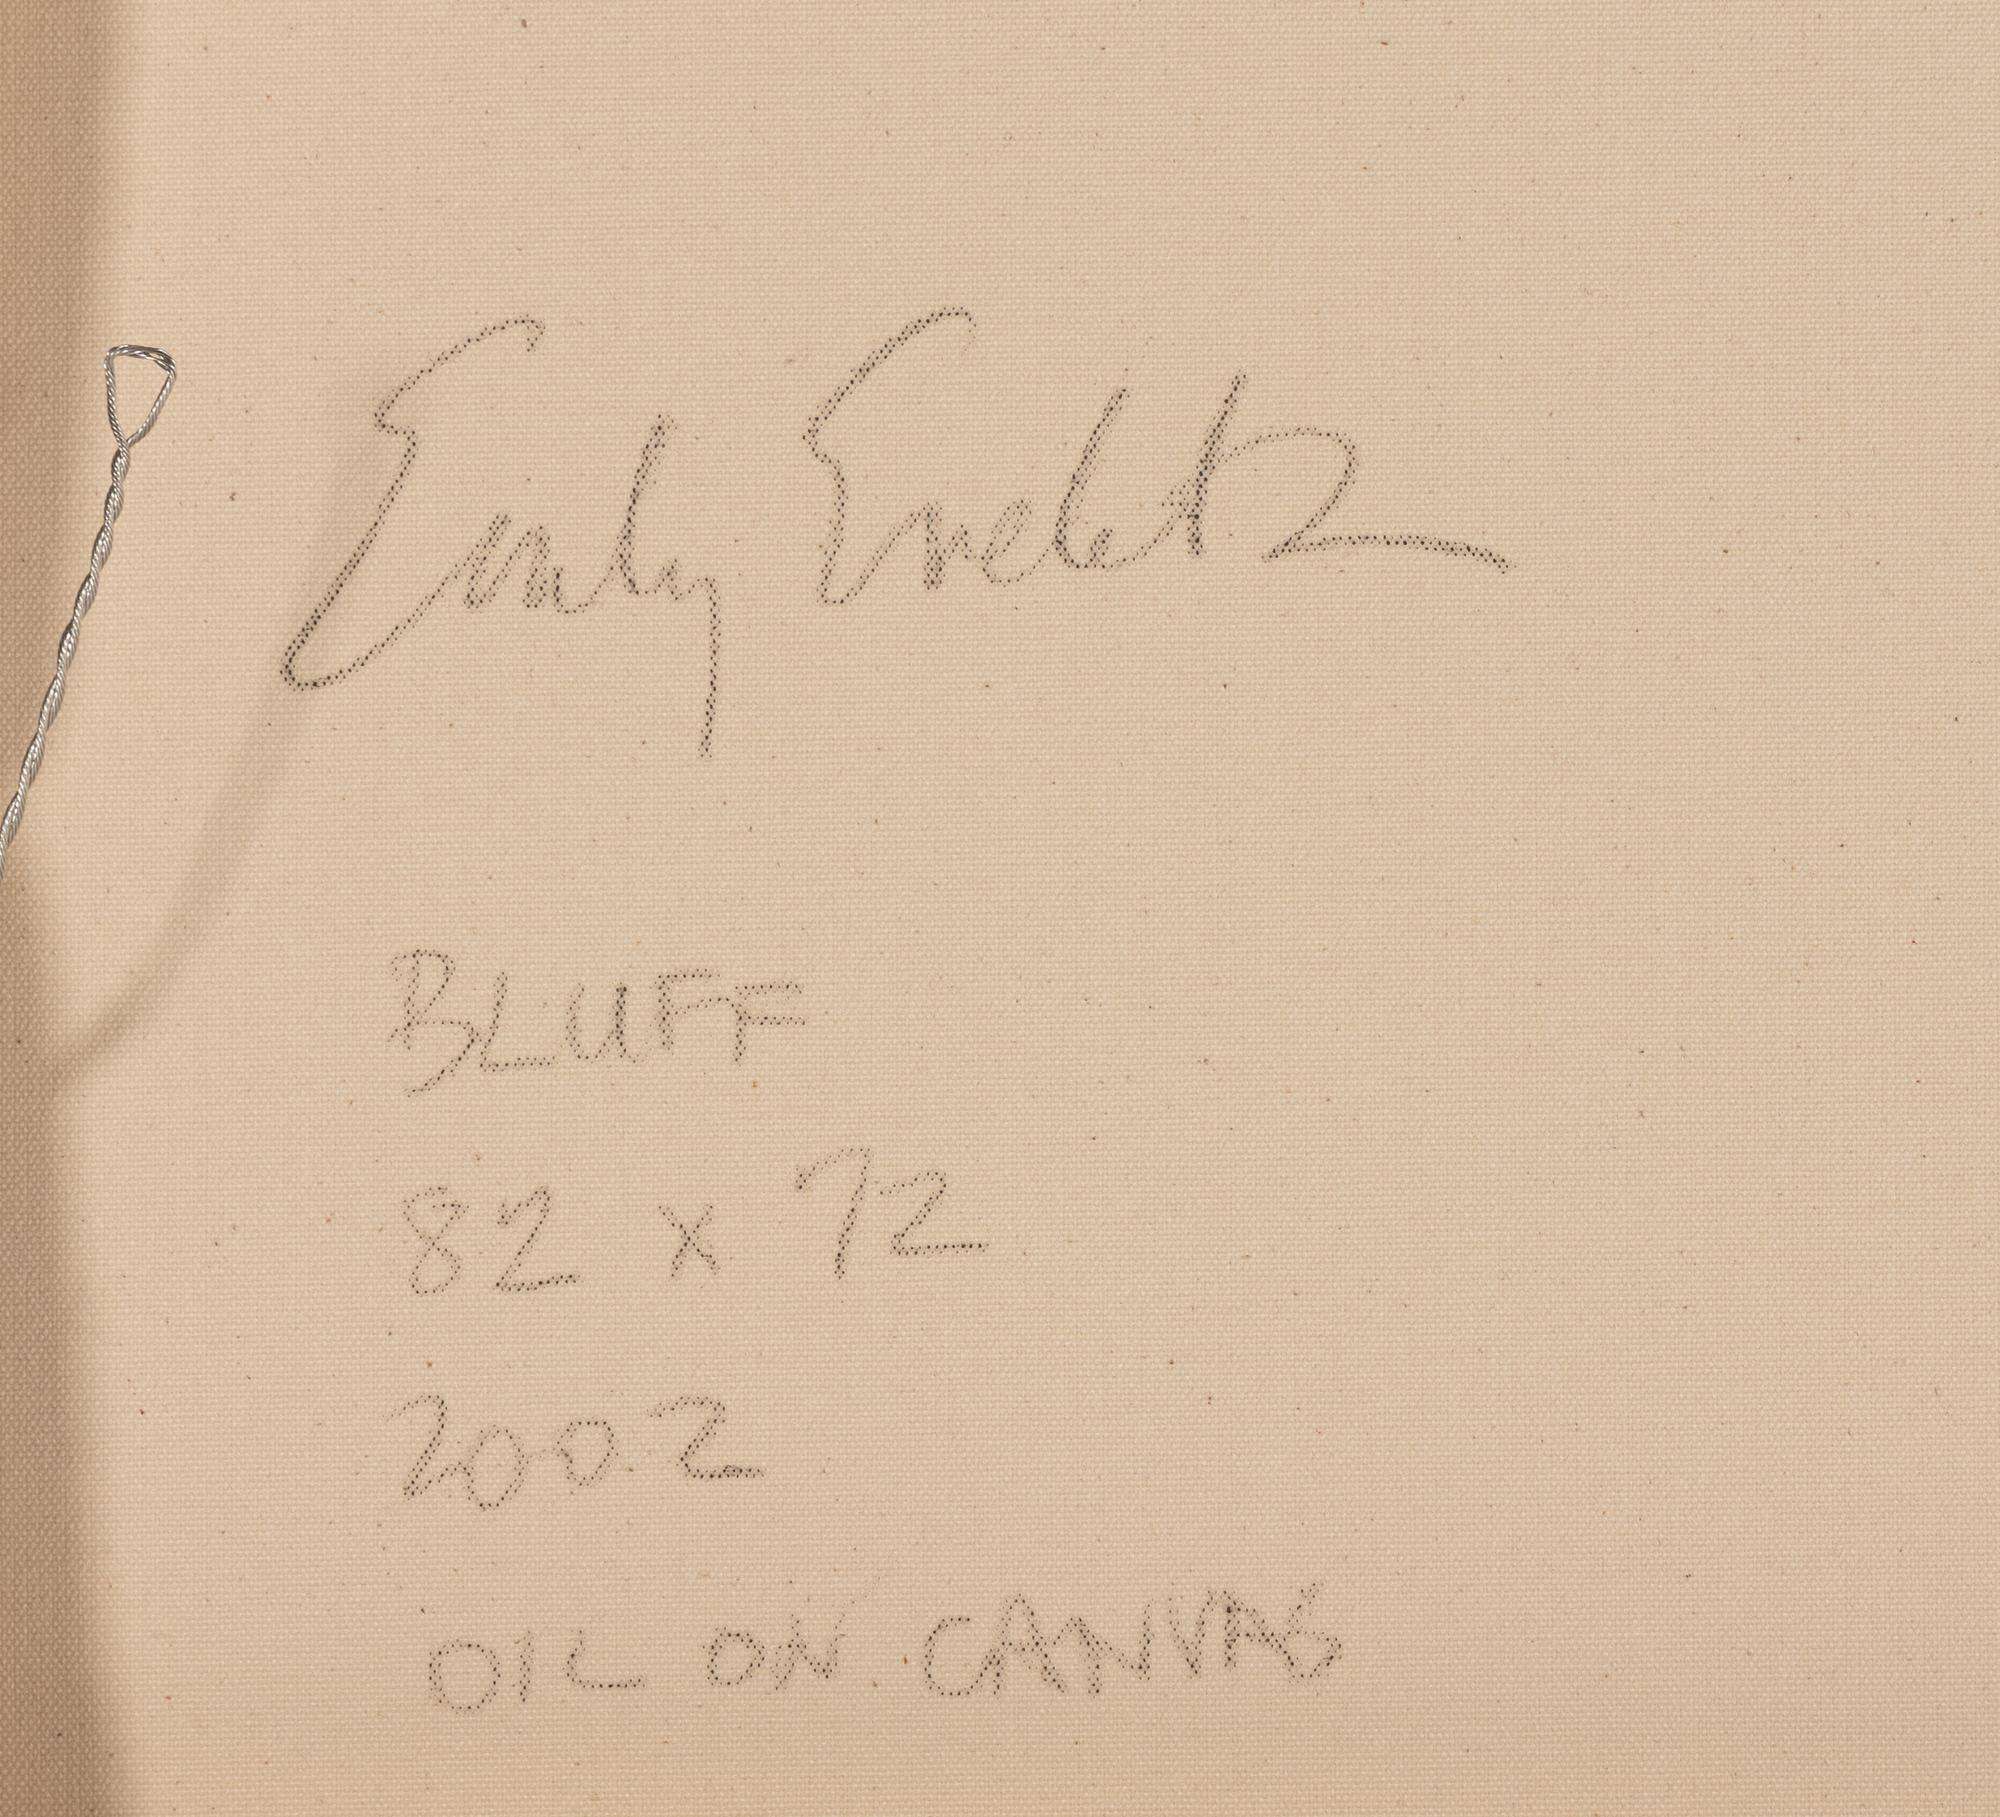 Emily Eveleth
BLUFF
82 x 72
2002
OIL ON CANVAS